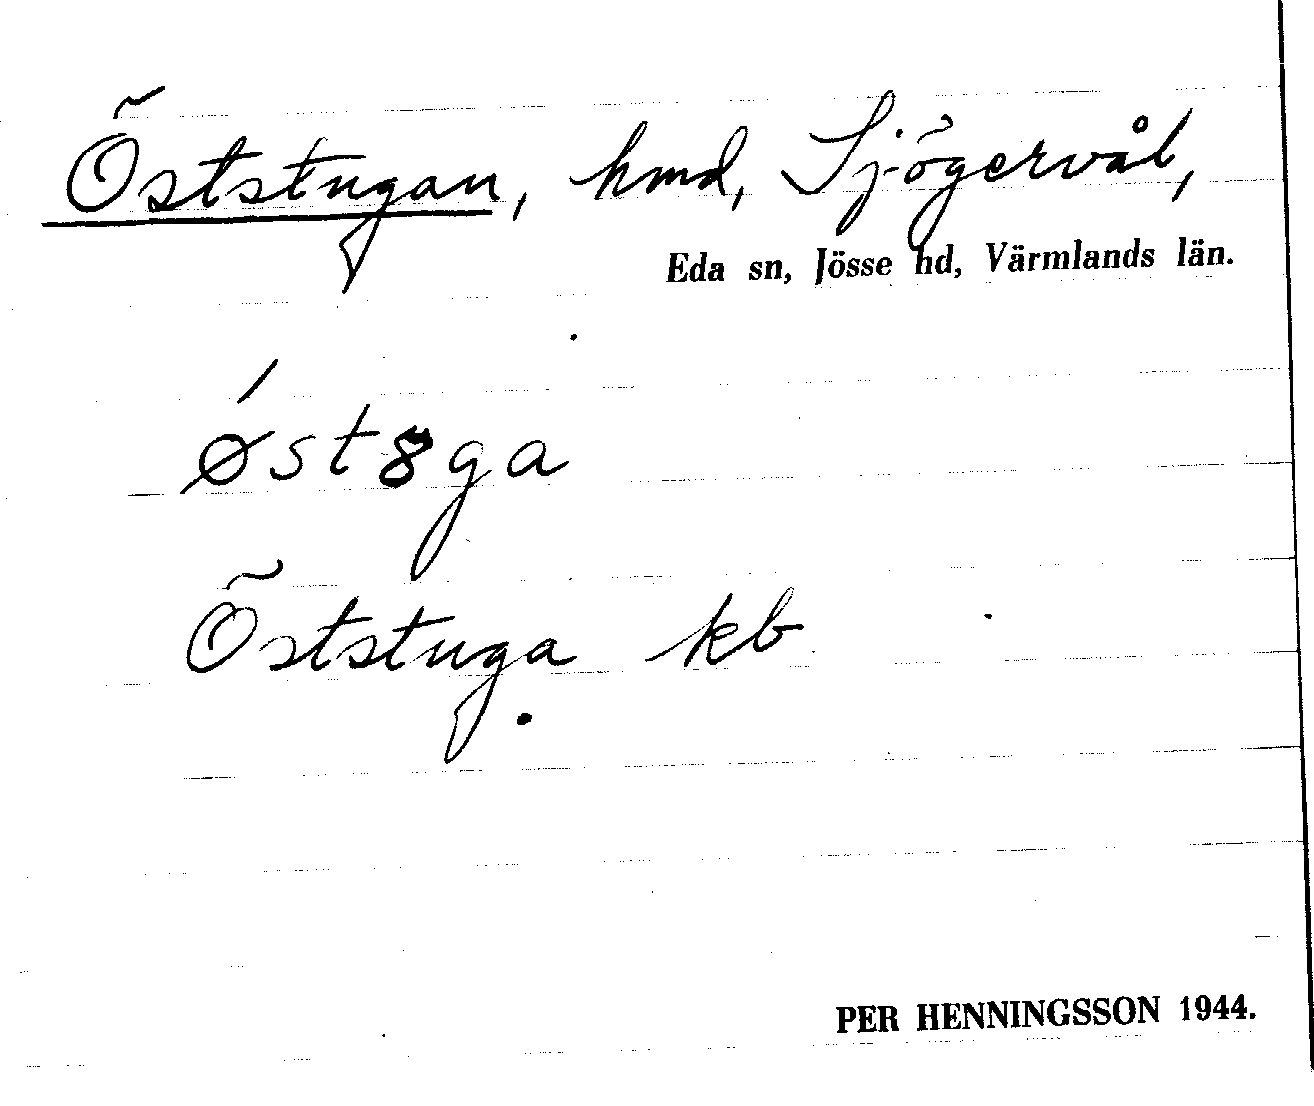 Öststugan, hmd, Sjögervål,
Eda sn, Jösse hd, Värmlands län.
ǿst8ga
Öststuga kb
PER HENNINGSSON 1944.